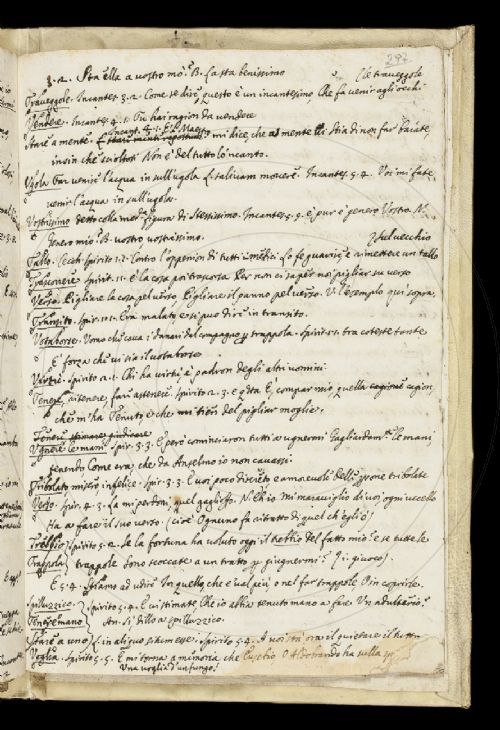 297
3.2. Sta ella a vostro mo. B. La sta benissimo
Traveggole. Incantes. 3.2. Come se dire, questo è un incantesimo Che fa venir agli occhi le traveggole
Vendere. Incantes. 4.1. Tu hai ragion da vendere
Stare a mente. Incant. 4.1. E'l Maestro mi dice, che a mente Stia di non far baiate,
insin che Non è del tutto lo'ncanto.
Ugola Far venire l'acqua in sull'ugola L. salivam movere. Incantes. 5.4. Voi mi fate
venir l'acqua in sull'ugola.
Vostrissimo detto alla figura di Stessissimo. Incantes. 5.9. è pure è genero Vostro. N.
Genero mio? B. vostro vostrissimo.
Tallo. Spirit. 1.2. Contro l'oppenion di tutti i medici Lo fe guarire e rimettere un tallo sul vecchio
Trascorrere Spirit. 1.1. è la cosa poi trascorsa Per non ci saper noi pigliar su verso
Verso. Pigliare la cosa pel verso, Pigliare il panno pel verso. V. l'esemplo qui sopra.
Transito. Spir. 1.1. Era malato e si può dire in transito.
Votaborse. Uomo che cava i danari del compagno trappola. Spirit. 1.1. tra coteste tante
È forza che vi sia il votaborse
Virtù. Spirito 2.1. Chi ha virtù è padron degli altri uomini
Tenere, ritenere, fare astenere. Spirito 2.3. e E, compar mio, quella cagion
che m'ha Tenuto e che mi tien del pigliar moglie.
Tenere stimare giudicare
Ugnere le mani. Spir. 3.3. E però cominciaron tutti a ugnermi Gagliardam. le mani
tenendo Come era, che da Anselmo io non cavassi
Tribolato misero infelice. Spir. 3.3. E voi poco discreto e amorevole Delle persone tribolate
Verso. Spir. 4.3. La mi perdoni, quel gaglioffo. N. Eh io mi maraviglio di voi: ogni uccello
Ha a fare il suo verso. (cioè Ognuno fa ritratto di quel ch'egli è)
Trebbio Spirito 5.2. Se la fortuna ha voluto oggi il nerbio del fatto mio? e se tutte le
Trappola trappole Sono scoccate a un tratto giugnermi? (q. i. giuoco)
E 5.4. Stiamo ad udire In quello, che e' val più, o nel far trappole O in coprirle.
Spilluzzico. Spirito 5.4. E vi stimate Che io abbia tenuto mano a fare Un adulterio?
Tenere mano An. Si, dillo a spilluzzico.
Stare a uno L. in aliquo situm esse. Spirito 5.4. A voi sta ora il quietare il tutto.
Voglia. Spirito 5.5. E mi torna a memoria che Eusebio O Aldobrando ha sulla
Una voglia d'un fungo.